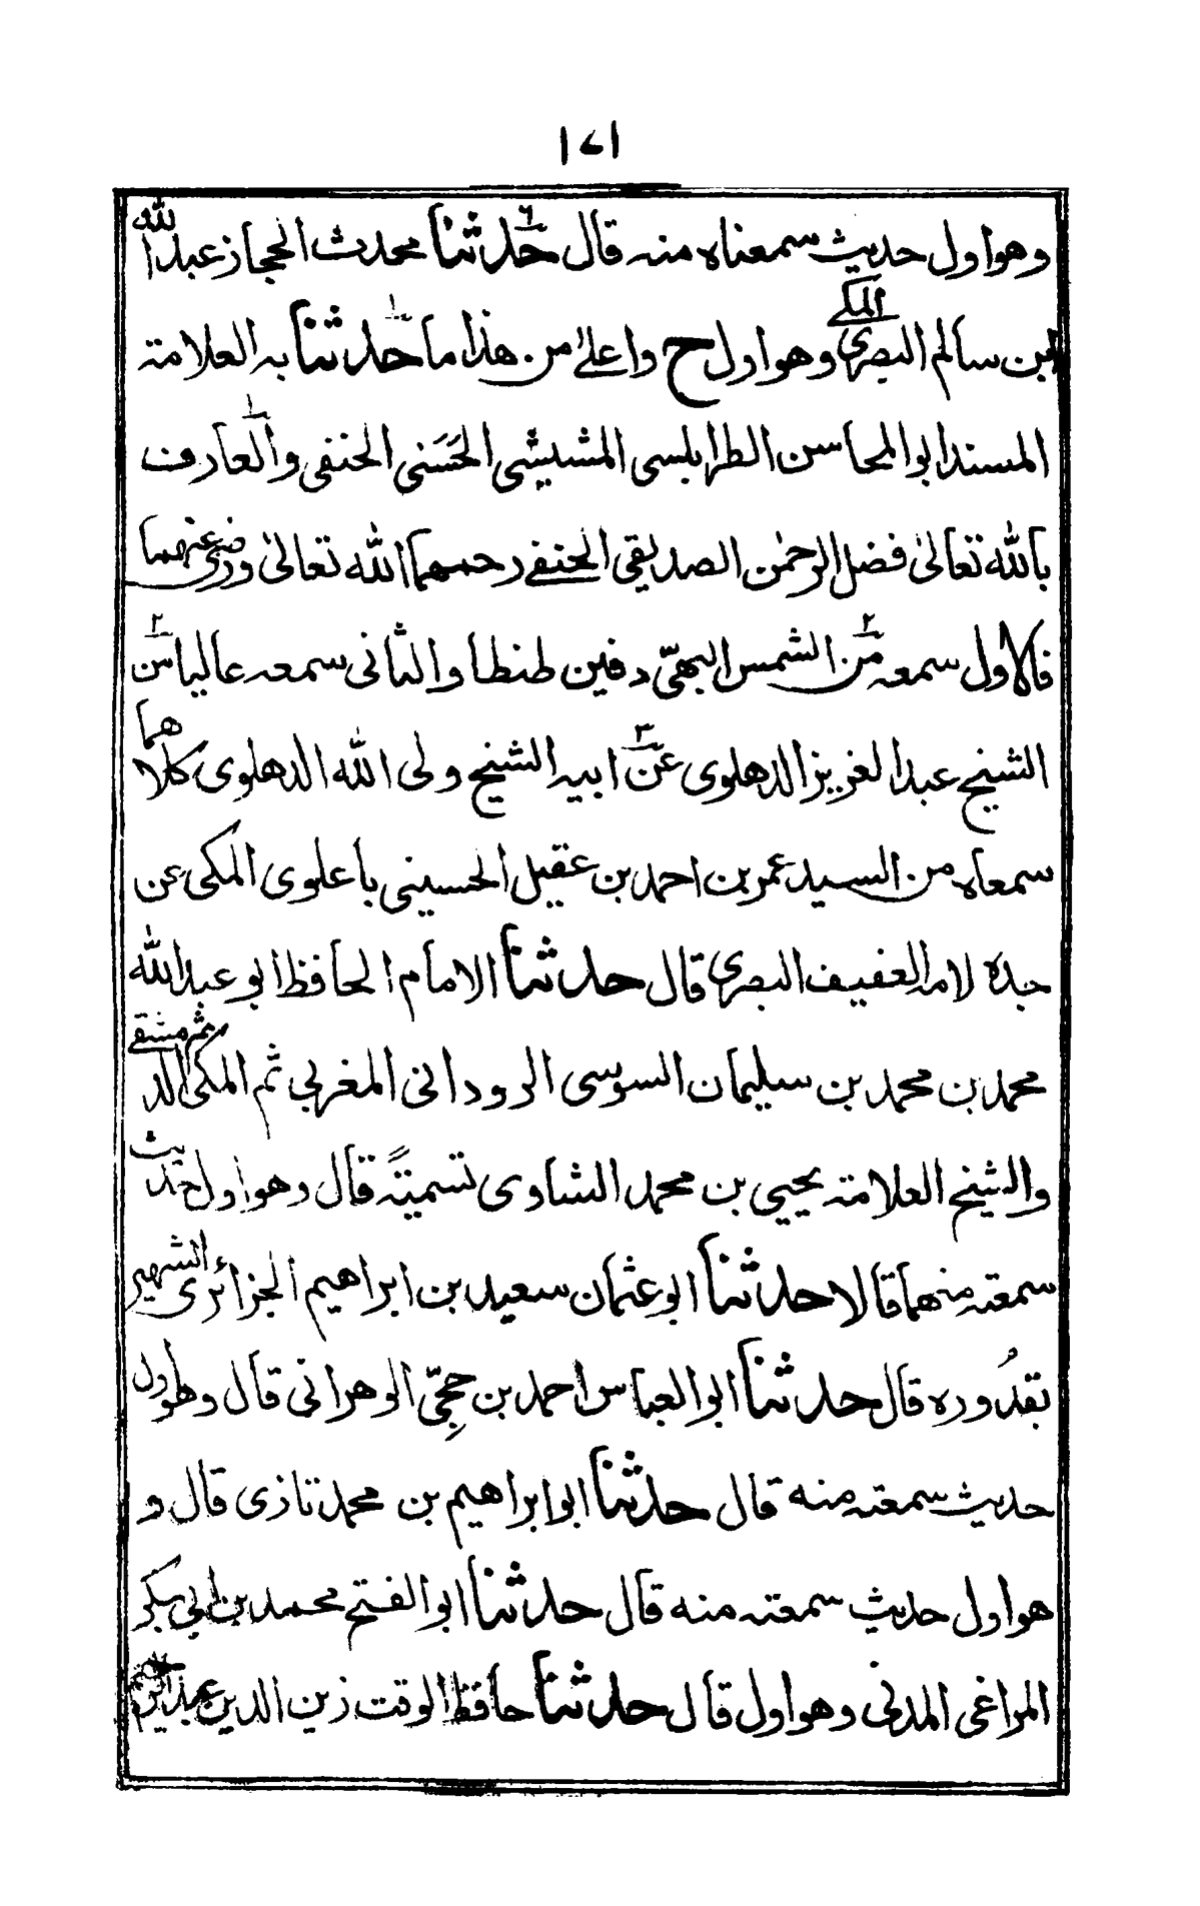 ١٧١
وهو اول حديث سمعناه منه قال حدثنا محدث الحجاز عبد الله
ابن سالم البصرى المكي وهو اول ح واعلى من هذا ما حدثنا به العلامة
المسند ابو المحاسن الطرابلسى المشيشى الحَسَنى الحنفى والعارف
بالله تعالىٰ فضل الرحمٰن الصديقى الحنفى رحمهما الله تعالىٰ ورضى عنهما
فالاول سمعه من الشمس البهىّ دفين طنطا والثانى سمعه عاليا من
الشيخ عبد العزيز الدهلوى عن ابيه الشيخ ولى الله الدهلوى كلاهما
سمعاه من السيد عمر بن احمد بن عقيل الحسينى باعلوى المكى عن
جده لامه العفيف البصرى قال حدثنا الامام الحافظ ابو عبد الله
محمد بن محمد بن سليمان السوسى الرودانى المغربى ثم المكى ثم الدمشقى
والشيخ العلامة يحيى بن محمد الشاوى تسميةً قال وهو اول حديث
سمعته منهما قالا حدثنا ابو عثمان سعيد بن ابراهيم الجزائرى الشهير
بقدُّوره قال حدثنا ابو العباس احمد بن حجّى الوهرانى قال وهو اول
حديث سمعته منه قال حدثنا ابو ابراهيم بن محمد تازى قال و
هو اول حديث سمعته منه قال حدثنا ابو الفتح محمد بن ابى بكر
المراغى المدنى وهو اول قال حدثنا حافظ الوقت زين الدين